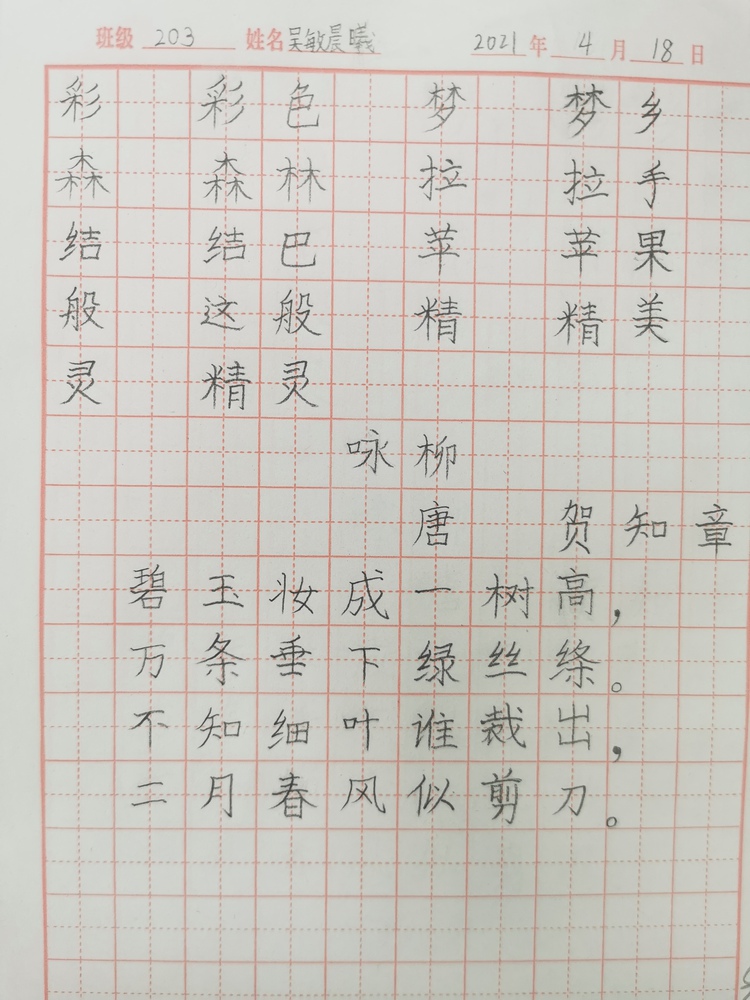 班级 203 姓名 吴敏晨曦 2021年 4月 18日
彩 彩色 梦 梦乡
森 森林 拉 拉手
结 结巴 苹 苹果
般 这般 精 精美
灵 精灵
咏柳
唐 贺知章
碧玉妆成一树高，
万条垂下绿丝绦。
不知细叶谁裁出，
二月春风似剪刀。